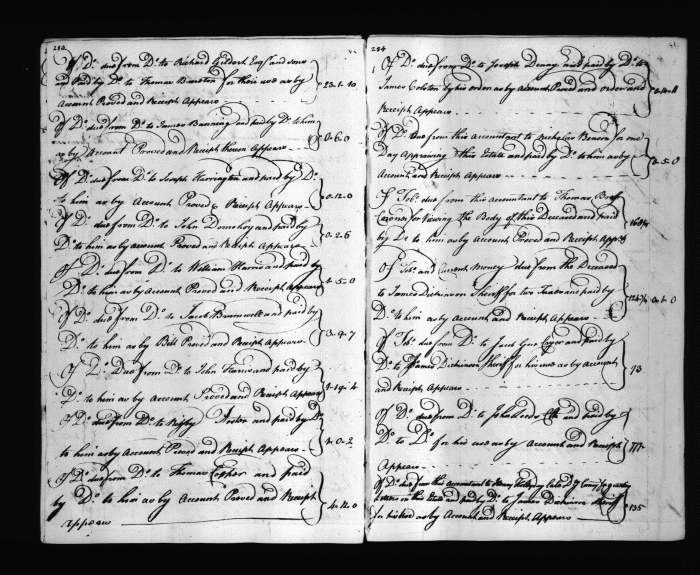 283
Of D.o due from D.o to Richard Gildart Esq.r and sons
and paid by D.o to Thomas for their use as by
Account Proved and Receipt Appears 23.1.10
Of D.o due from D.o to James Banning and paid by D.o to him
as by Account Proved and Receipt thereon Appears 0.6.0
Of D.o due from D.o to Joseph Harrington and paid by D.o
to him as by Account Proved & Receipt Appears 0.12.0
Of D.o due from D.o to John and paid by
D.o to him as by account Proved and Receipt Appears 0.2.6
Of D.o due from D.o to William Harris and paid by
D.o to him as by Account Proved and Receipt Appears 5.0
Of D.o due from D.o to Jacob and paid by
D.o to him as by Bill Proved and Receipt Appears 3.4.7
Of D.o Due from D.o to John and paid by
D.o to him as by Account Proved and Receipt Appears 19.4
Of D.o due from D.o to and paid by D.o
to him as by Account Proved and Receipt Appears 0.2
Of D.o due from D.o to Thomas and paid
by D.o to him as by Account Proved and Receipt
appears 4.12.0
284
Of D.o due from D.o to Joseph Denny and paid by D.o to
James by his order as by Account Proved and order and
Receipt Appears
Of D.o Due from this accountant to Nicholas Benson for one
Day Appraising this Estate and paid by D.o to him as by
Account and Receipt Appears 5.0
Of Tob.o due from this accountant to Thomas
Coroner for Viewing the Body of this Deceased and paid
by D.o to him as by Account Proved and Receipt App.rs
Of Tob.o and Current Money due from the Deceased
to James Dickinson Sheriff for two Years and paid by
D.o to him as by Account and Receipt Appears
Of Tob.o due from D.o to and paid by
D.o to James Dickinson Sheriff for his use as by Account
and Receipt Appears 73
Of D.o due from D.o to John and paid by
D.o to D.o for his use as by Account and Receipt
Appears 177
Of D.o due from this accountant to late D.y Comy.
and paid by D.o to James Dickinson Sheriff
for his use as by Account and Receipt Appears 135